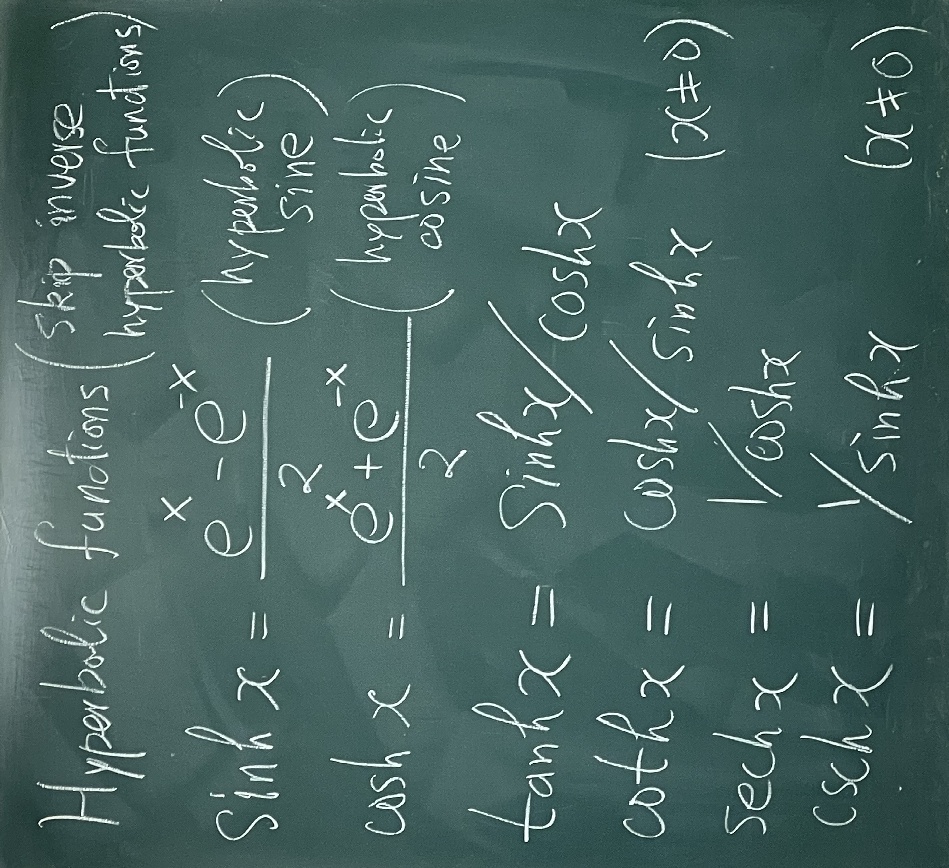 Hyperbolic functions (skip inverse
hyperbolic functions)
sinh x = e^x - e^-x / 2 (hyperbolic
sine)
cosh x = e^x + e^-x / 2 (hyperbolic
cosine)
tanh x = sinhx/coshx
coth x = coshx/sinhx (x≠0)
sech x = 1/coshx
csch x = 1/sinhx (x≠0)